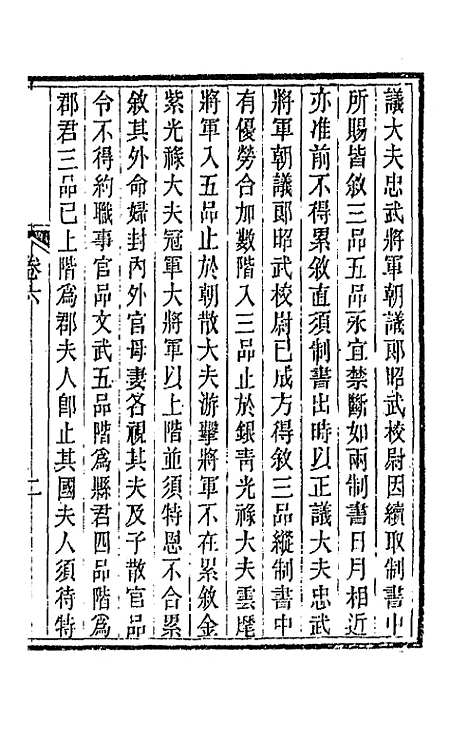 議大夫忠武將軍朝議郎昭武校尉因續取制書中
所賜皆敘三品五品永宜禁斷如兩制書日月相近
亦准前不得累敘直須制書出時以正議大夫忠武
將軍朝議郎昭武校尉已成方得敘三品縱制書中
有優勞合加數階入三品止於銀靑光祿大夫雲麾
將軍入五品止於朝散大夫游擊將軍不在累敘金
紫光祿大夫冠軍大將軍以上階並須特恩不合累
敘其外命婦封內外官母妻各視其夫及子散官品
令不得約職事官品文武五品階爲縣君四品階爲
郡君三品已上階爲郡夫人卽止其國夫人須待特
卷六